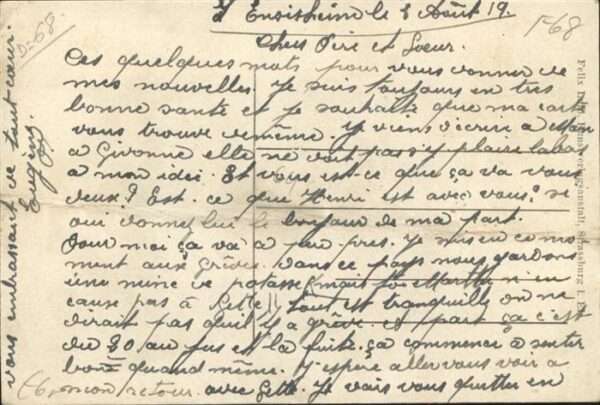 Ensisheim le 8 Août 19.
Chers Père et Soeur.
Ces quelques mots pour vous donner de
mes nouvelles. Je suis toujours en très
bonne santé et je souhaite que ma carte
vous trouve de même. Je viens d'écrire a
a Givonne elle ne doit pas s'y plaire labas
a mon idei. Et vous est-ce que ça va vous
deux? Est. ce que Henri est avec vous? si
oui donnez lui le bonjour de ma part.
Pour moi ça va à peu près. Je suis en ce mo
ment aux Grèves. Dans ce pays nous gardons
une mine de potasse (mait n'en
cause pas à tout est tranquille on ne
dirait pas quil y a grève. a part ça c'est
du 80 au jus et la fuite. ça commence à sentir
bon quand même. J'espère aller vous voir a
mon retour. avec Je vais vous quitter en
vous embrassant de tout coeur.
Eugène
D=68
F68
Felix Strassburg